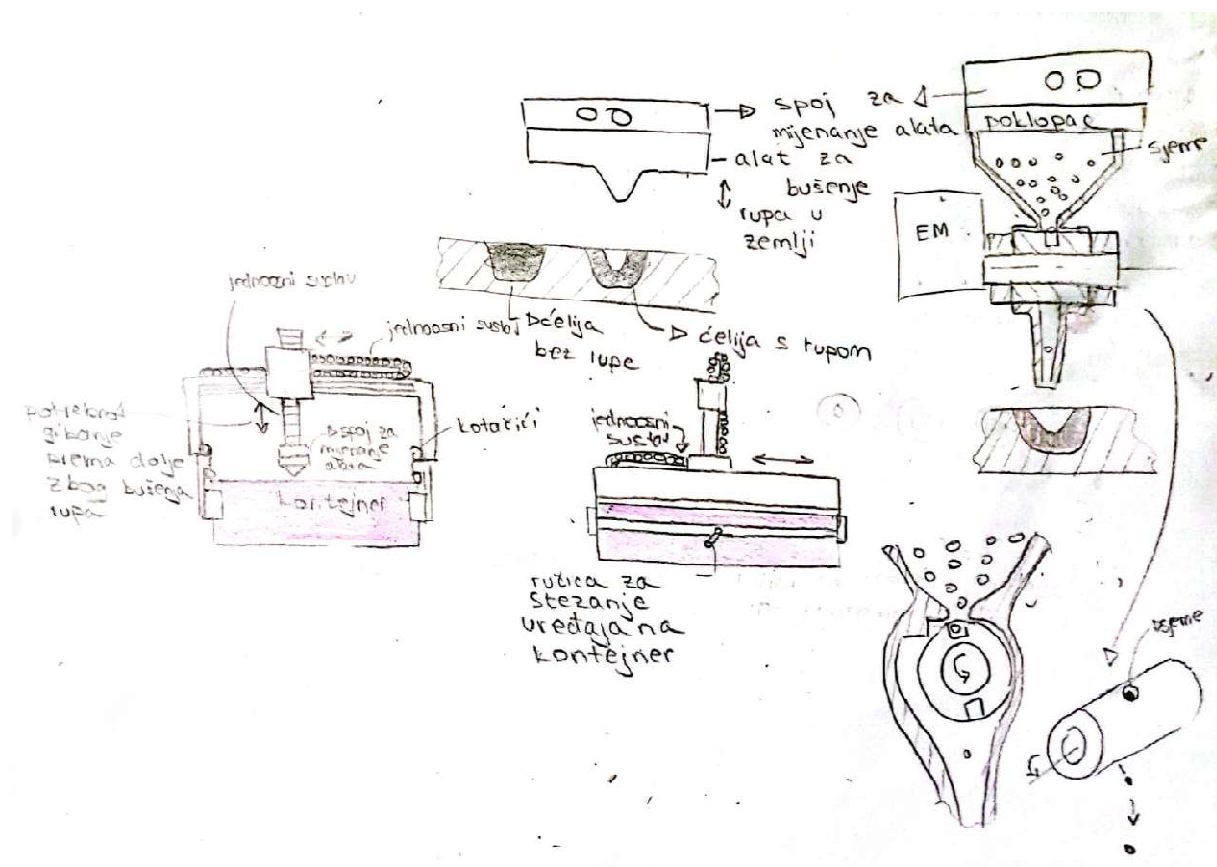 spoj za
mijenanje alata
poklopac
sjeme
alat za
bušenje
rupa u
zemlji
EM
jednoosni sustav
jednoosni sustav
ćelija
bez rupe
ćelija s rupom
potrebno
gibanje
prema dolje
zbog bušenja
rupa
spoj za
mjenanje
alata
kotačići
kontejner
jednoosni
sustav
ručica za
stezanje
uređaja na
kontejner
sjeme